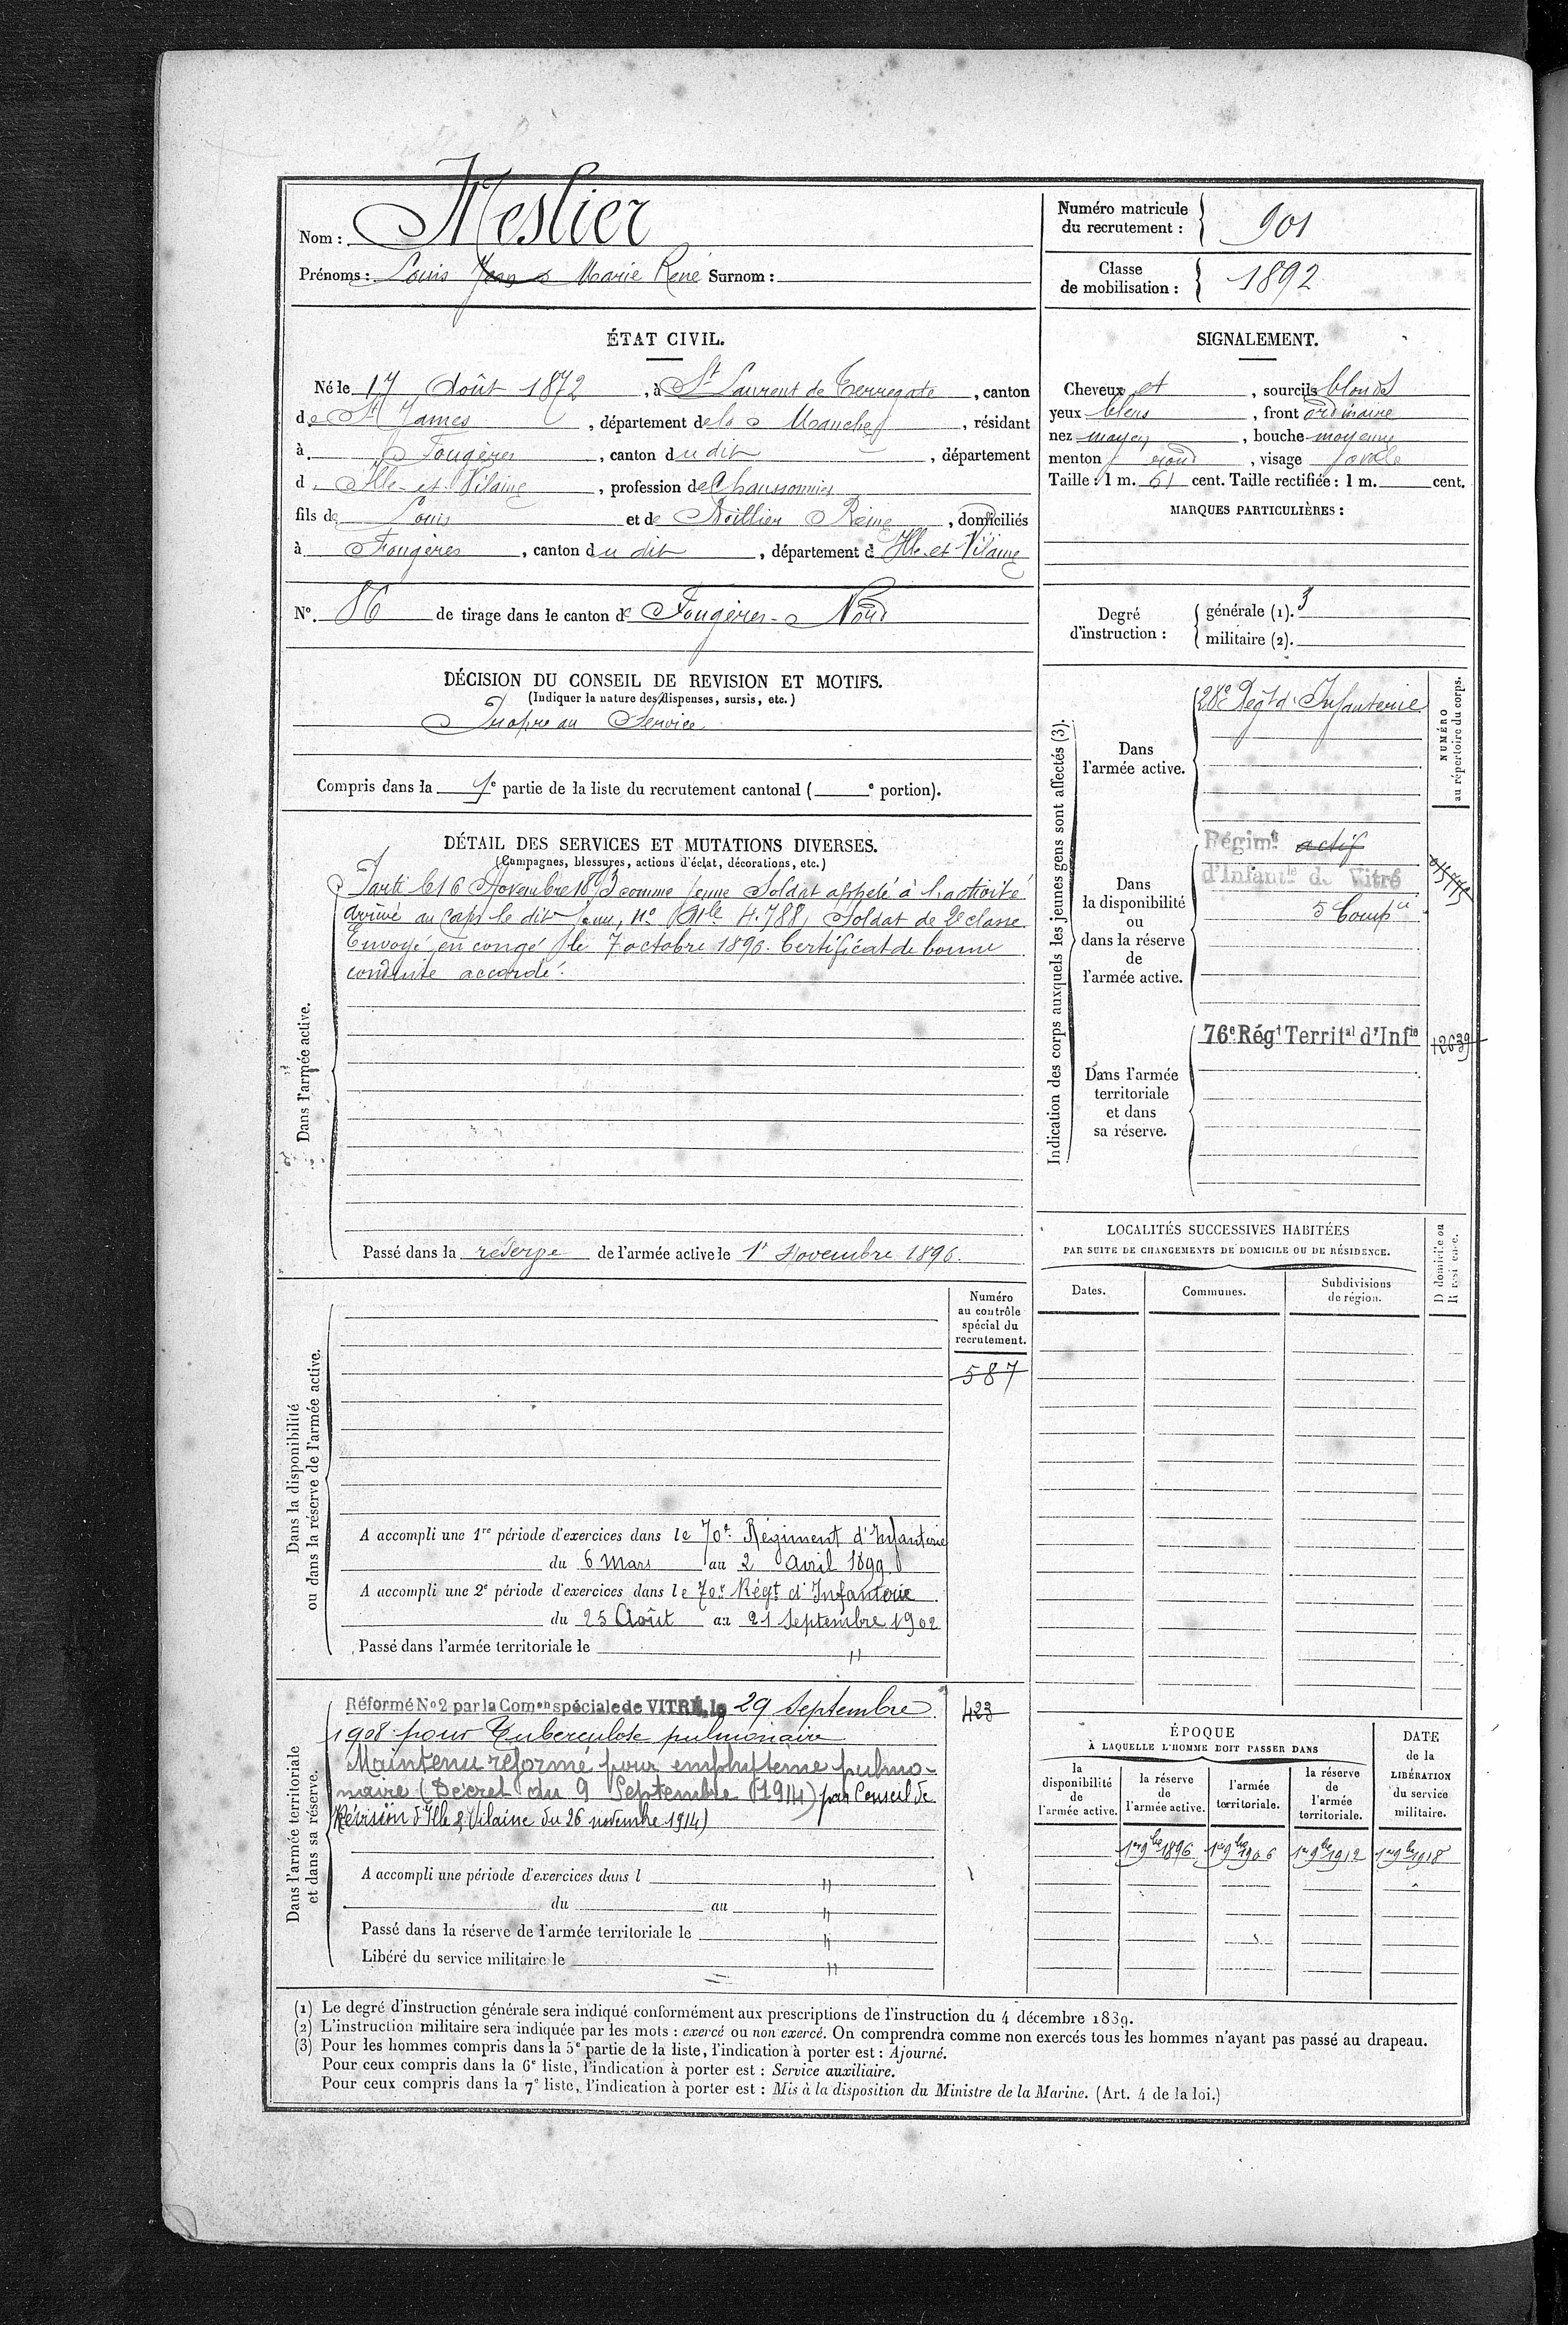 Nom : Meslier
Prénoms : Louis Jean Marie René Surnom :
Numéro matricule du recrutement : 901
Classe de mobilisation : 1892
ÉTAT CIVIL.
Né le 17 Août 1872, à St Laurent de Terregate, canton
de St James, département de la Manche, résidant
à Fougères, canton du dit, département
d Ille-et-Vilaine, profession de Chaussonnier
fils de Louis et de Reine, domiciliés
à Fougères, canton du dit, département d Ille et Vilaine
N° 86 de tirage dans le canton de Fougères-Nord
SIGNALEMENT.
Cheveux et, sourcils blonds
yeux bleus, front ordinaire
nez moyen, bouche moyenne
menton rond, visage ovale
Taille : 1 m. 61 cent. Taille rectifiée : 1 m. cent.
MARQUES PARTICULIÈRES :
Degré d'instruction :
générale (1). 3
militaire (2).
DÉCISION DU CONSEIL DE REVISION ET MOTIFS.
(Indiquer la nature des dispenses, sursis, etc.)
Propre au Service
Compris dans la 1e partie de la liste du recrutement cantonal ( e portion).
DÉTAIL DES SERVICES ET MUTATIONS DIVERSES.
(Campagnes, blessures, actions d'éclat, décorations, etc.)
Dans l'armée active.
Parti le 16 Novembre 1893 comme jeune Soldat appelé à l'activité
Arrivé au Corps le dit jour, n° Mle 4.788, Soldat de 2e classe
Envoyé en congé le 7 octobre 1896. Certificat de bonne
conduite accordé.
Passé dans la réserve de l'armée active le 1r Novembre 1896.
Indication des corps auxquels les jeunes gens sont affectés (3).
NUMÉRO au répertoire du corps.
Dans l'armée active.
28e Régt d'Infanterie
Dans la disponibilité ou dans la réserve de l'armée active.
Régimt actif
d'Infantie de Vitré
5 Compie
Dans l'armée territoriale et dans sa réserve.
76e Régt Territal d'Infie
12639
LOCALITÉS SUCCESSIVES HABITÉES
PAR SUITE DE CHANGEMENTS DE DOMICILE OU DE RÉSIDENCE.
Dates.
Communes.
Subdivisions de région.
D domicile ou R résidence.
Dans la disponibilité ou dans la réserve de l'armée active.
Numéro au contrôle spécial du recrutement.
587
A accompli une 1re période d'exercices dans le 70e Régiment d'Infanterie
du 6 Mars au 2 Avril 1899
A accompli une 2e période d'exercices dans le 70e Régt d'Infanterie
du 25 Août au 21 Septembre 1902
Passé dans l'armée territoriale le "
Dans l'armée territoriale et dans sa réserve.
Réformé N°2 par la Comon spéciale de VITRÉ, le 29 Septembre
423
1908 pour Tuberculose pulmonaire
Maintenu réformé pour emphysème pulmo-
naire (Décret du 9 Septembre 1914) par Conseil de
Révision d'Ille & Vilaine du 26 novembre 1914)
A accompli une période d'exercices dans l "
du au "
Passé dans la réserve de l'armée territoriale le "
Libéré du service militaire le "
ÉPOQUE
À LAQUELLE L'HOMME DOIT PASSER DANS
la disponibilité de l'armée active.
la réserve de l'armée active.
l'armée territoriale.
la réserve de l'armée territoriale.
DATE de la LIBÉRATION du service militaire.
1er 9bre 1896 1er 9bre 1906 1er 9bre 1912 1er 9bre 1918
(1) Le degré d'instruction générale sera indiqué conformément aux prescriptions de l'instruction du 4 décembre 1889.
(2) L'instruction militaire sera indiquée par les mots : exercé ou non exercé. On comprendra comme non exercés tous les hommes n'ayant pas passé au drapeau.
(3) Pour les hommes compris dans la 5e partie de la liste, l'indication à porter est : Ajourné.
Pour ceux compris dans la 6e liste, l'indication à porter est : Service auxiliaire.
Pour ceux compris dans la 7e liste, l'indication à porter est : Mis à la disposition du Ministre de la Marine. (Art. 4 de la loi.)